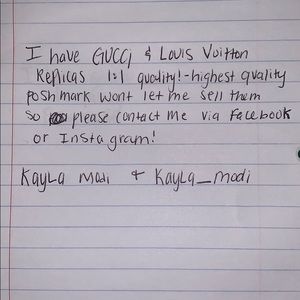 I have GUCCi & LOUIS Vuitton
Replicas 1:1 quality!-highest quality
poshmark wont let me sell them
so please contact me via facebook
or Instagram!
Kayla Modi & Kayla_modi